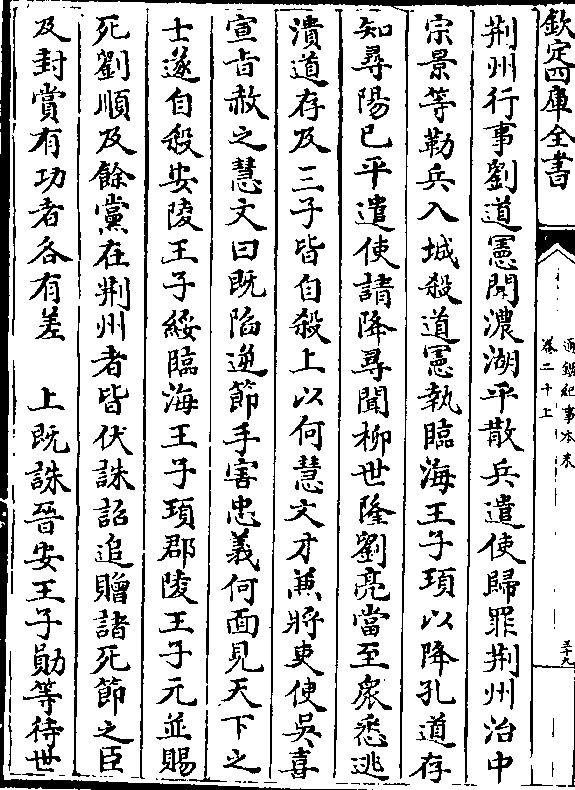 欽定四庫全書
通鑑紀事本末
卷二十上
五十九
荆州行事劉道憲聞濃湖平散兵遣使歸罪荆州治中
宗景等勒兵入城殺道憲執臨海王子頊以降孔道存
知尋陽已平遣使請降尋聞柳世隆劉亮當至衆悉逃
潰道存及三子皆自殺上以何慧文才兼將吏使吳喜
宣旨赦之慧文曰既䧟逆節手害忠義何面見天下之
士遂自殺安陵王子綏臨海王子頊郡陵王子元並賜
死劉順及餘黨在荆州者皆伏誅詔追贈諸死節之臣
及封賞有功者各有差　上既誅晉安王子勛等待世